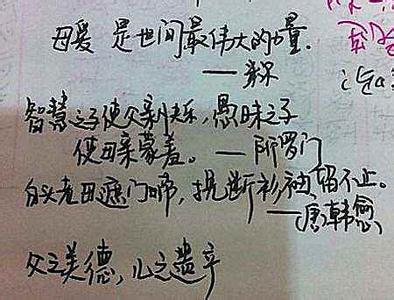 母爱 是世间最伟大的力量.
——米尔
智慧之子使父亲快乐,愚昧之子
使母亲蒙羞。—所罗门
白头老母遮门啼,挽断衫袖留不止。
——唐韩愈
父之美德,儿之遗产